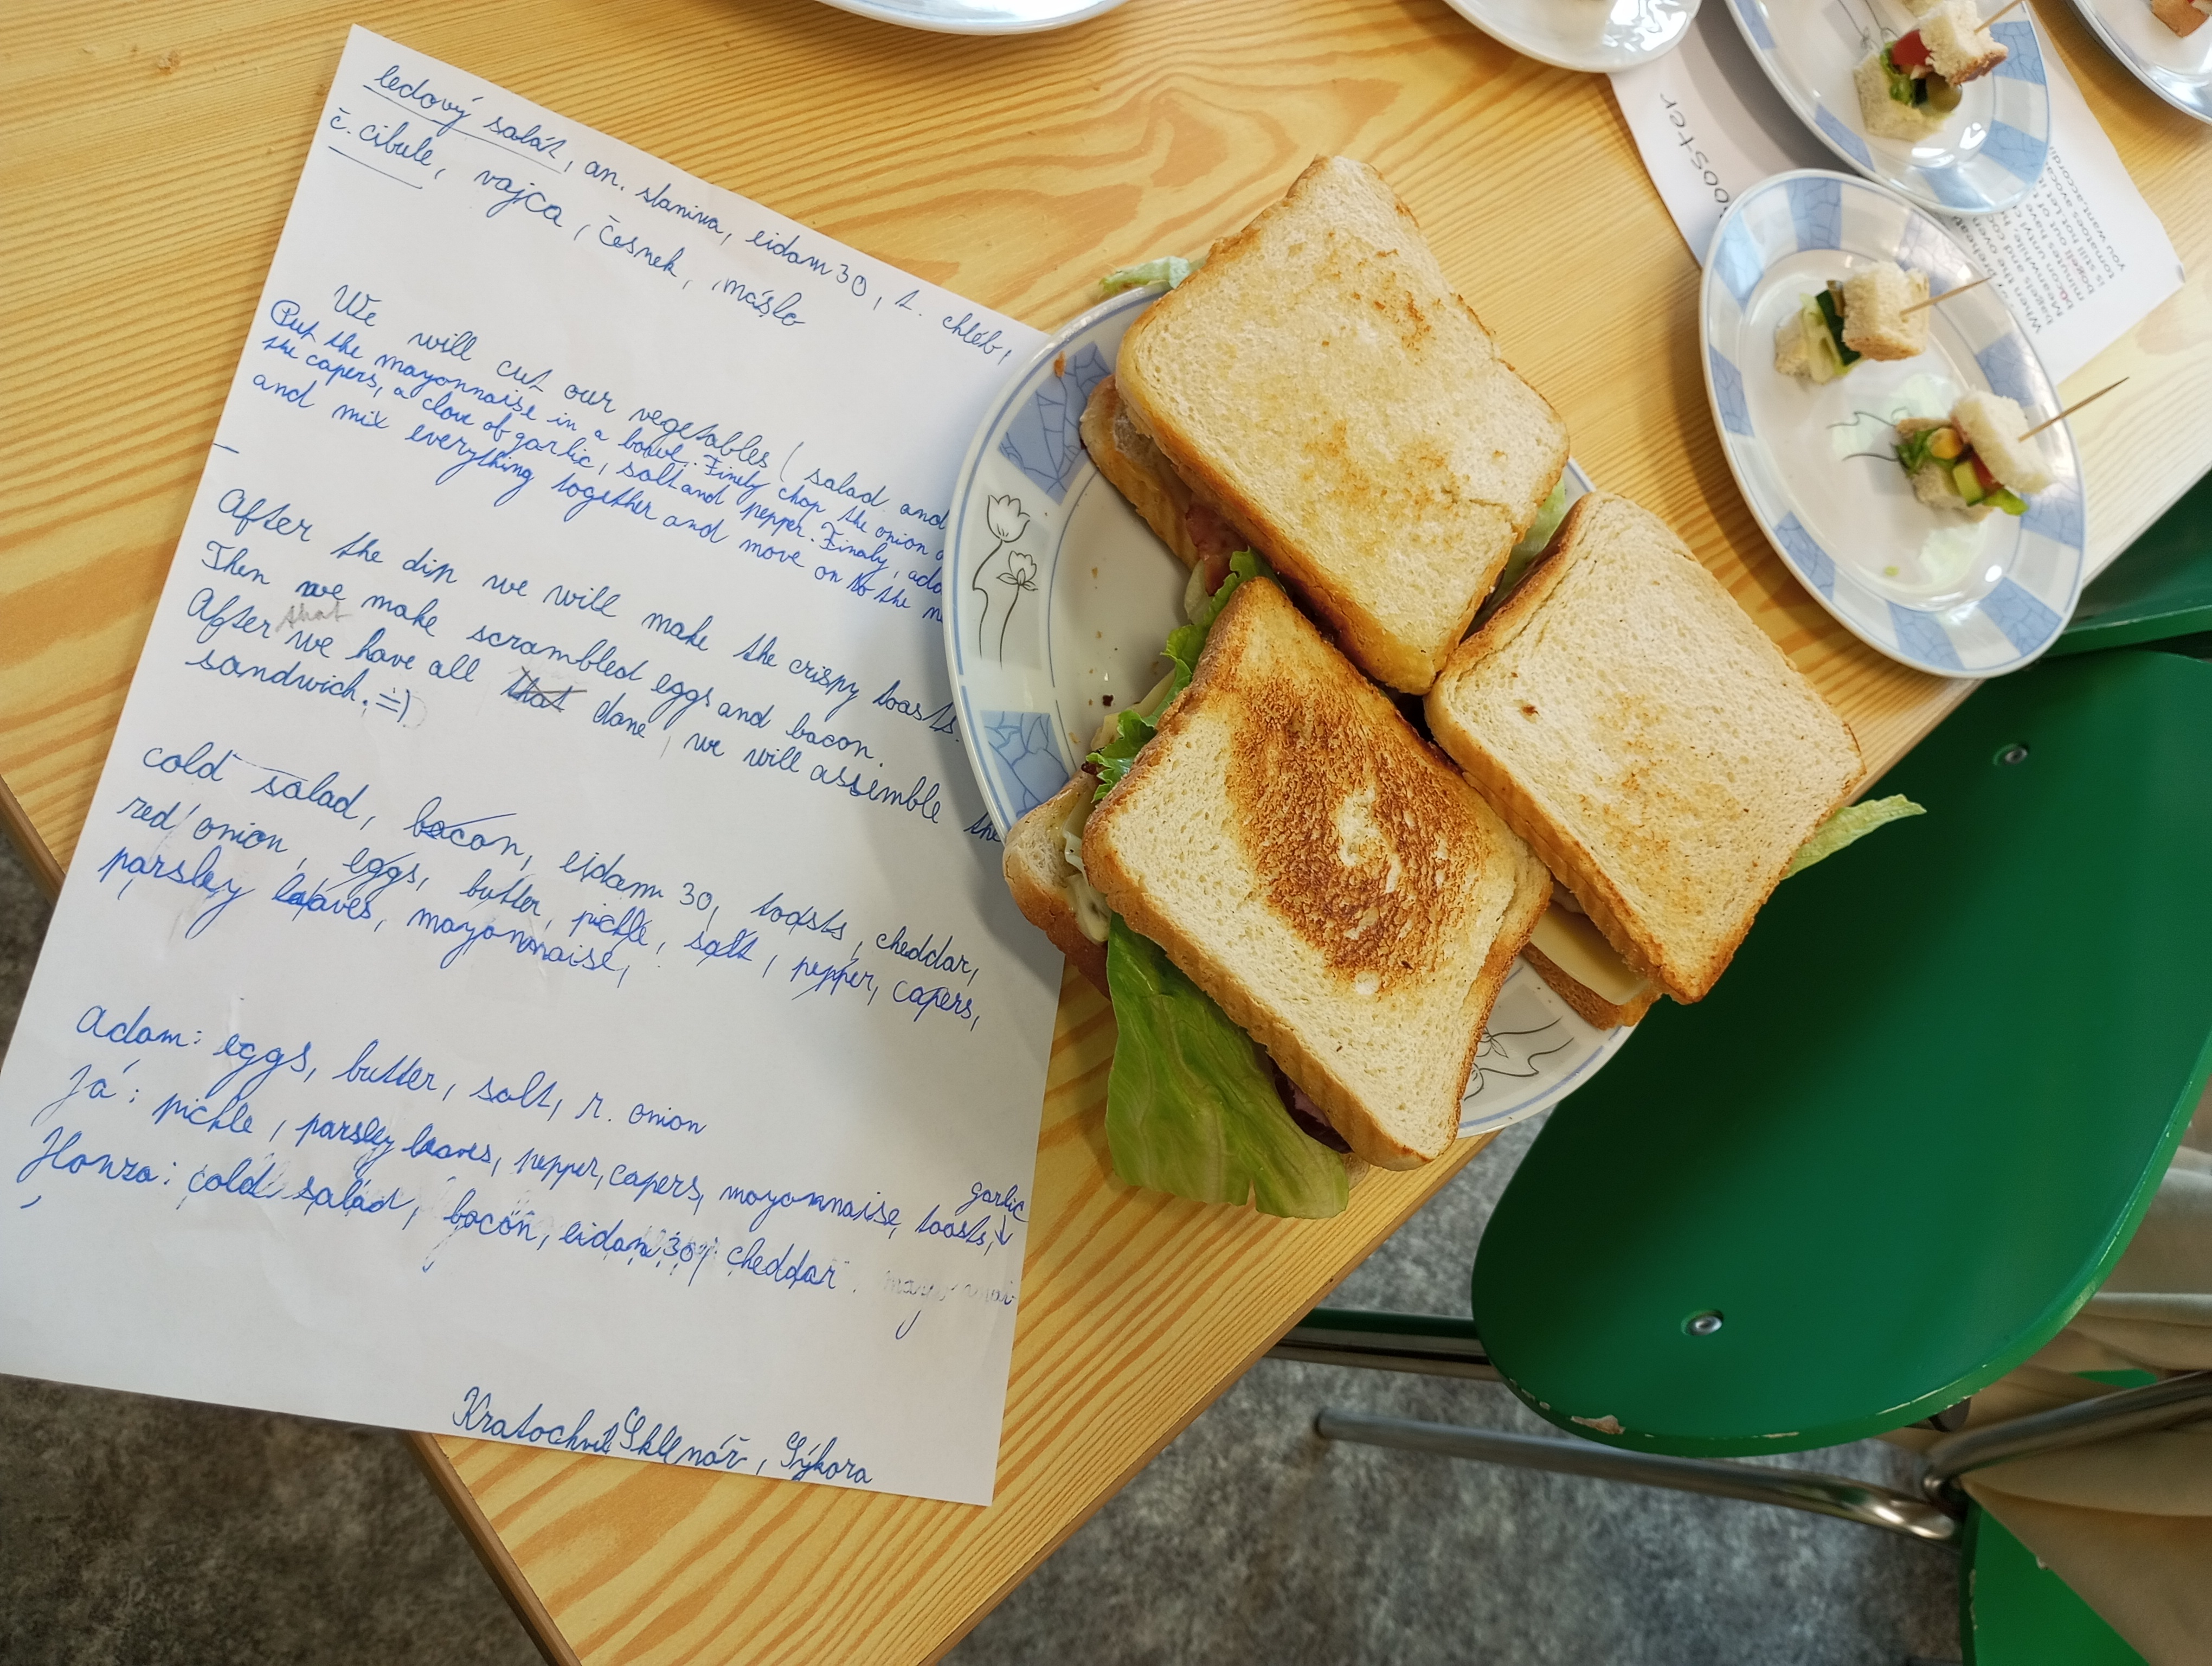 ledový salát, an. slanina, eidam 30, t. chléb,
č. cibule, vajca, česnek, máslo
We will cut our vegetables ( salad and
Put the mayonnaise in a bowl. Finely chop the onion
the capers, a clove of garlic, salt and pepper. Finaly, add
and mix everything together and move on to the
After the dip we will make the crispy toasts.
Then we make scrambled eggs and bacon.
After that we have all that done, we will assemble the
sandwich. =)
cold salad, bacon, eidam 30, toasts, cheddar,
red onion, eggs, butter, pickle, salt, pepper, capers,
parsley leaves, mayonnaise,
Adam: eggs, butter, salt, r. onion
Já: pickle, parsley leaves, pepper, capers, mayonnaise, toasts, garlic
Honza: cold salad, bacon, eidam 30, cheddar.
Kratochvíl Sklenář, Sýkora
ooster